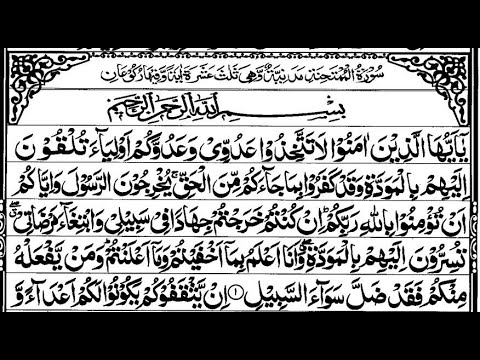 سُوْرَةُ الْمُمْتَحِنَةِ مَدَنِيَّةٌ وَّهِيَ ثَلٰثَ عَشْرَةَ اٰيَةً وَّفِيْهَا رُكُوْعَانِ
بِسْمِ اللّٰهِ الرَّحْمٰنِ الرَّحِيْمِ
يٰۤاَيُّهَا الَّذِيْنَ اٰمَنُوْا لَا تَتَّخِذُوْا عَدُوِّيْ وَعَدُوَّكُمْ اَوْلِيَآءَ تُلْقُوْنَ
اِلَيْهِمْ بِالْمَوَدَّةِ وَقَدْ كَفَرُوْا بِمَا جَآءَكُمْ مِّنَ الْحَقِّ ۚ يُخْرِجُوْنَ الرَّسُوْلَ وَاِيَّاكُمْ
اَنْ تُؤْمِنُوْا بِاللّٰهِ رَبِّكُمْ ؕ اِنْ كُنْتُمْ خَرَجْتُمْ جِهَادًا فِيْ سَبِيْلِيْ وَابْتِغَآءَ مَرْضَاتِيْ
تُسِرُّوْنَ اِلَيْهِمْ بِالْمَوَدَّةِ ۖ وَاَنَا اَعْلَمُ بِمَاۤ اَخْفَيْتُمْ وَمَاۤ اَعْلَنْتُمْ ؕ وَمَنْ يَّفْعَلْهُ
مِنْكُمْ فَقَدْ ضَلَّ سَوَآءَ السَّبِيْلِ ۝۱ اِنْ يَّثْقَفُوْكُمْ يَكُوْنُوْا لَكُمْ اَعْدَآءً وَّ